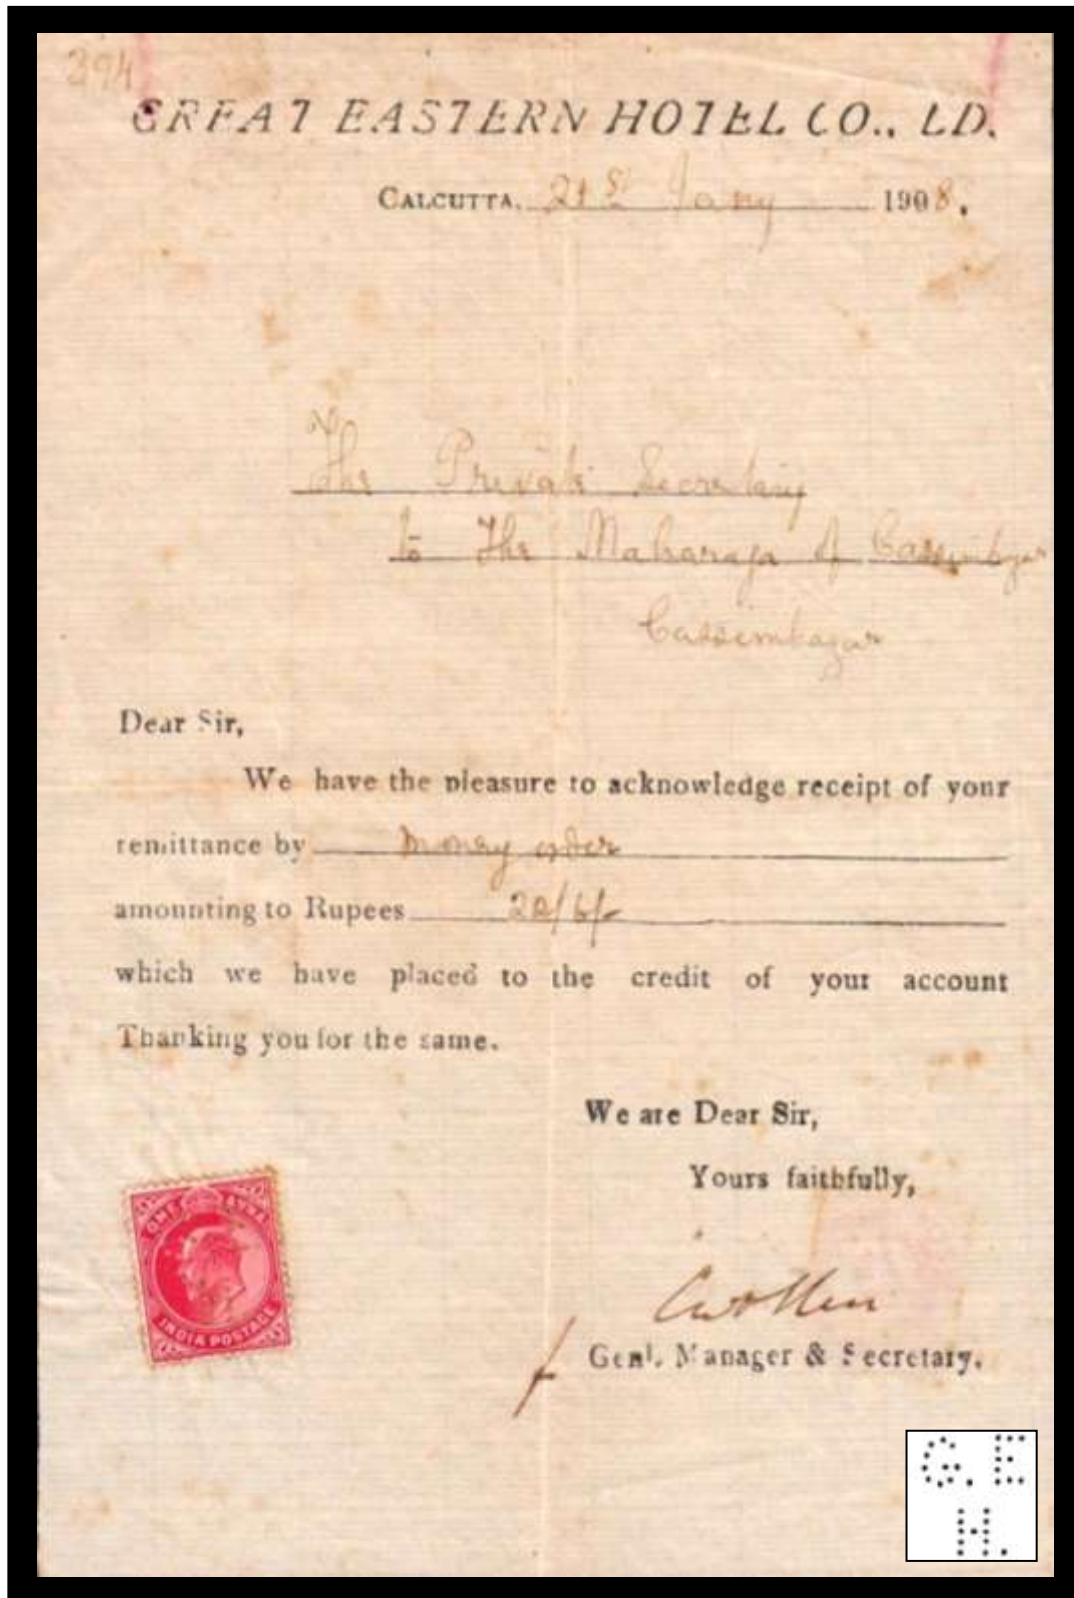 394
GREAT EASTERN HOTEL CO., LD.
CALCUTTA. 21st Jany 1908.
The Private Secretary
to The Maharaja of Cassimbazar
Cassimbazar
Dear Sir,
We have the pleasure to acknowledge receipt of your
remittance by money order
amounting to Rupees
which we have placed to the credit of your account
Thanking you for the same.
We are Dear Sir,
Yours faithfully,
ONE ANNA
INDIA POSTAGE
Genl. Manager & Secretary.
G. E
H.